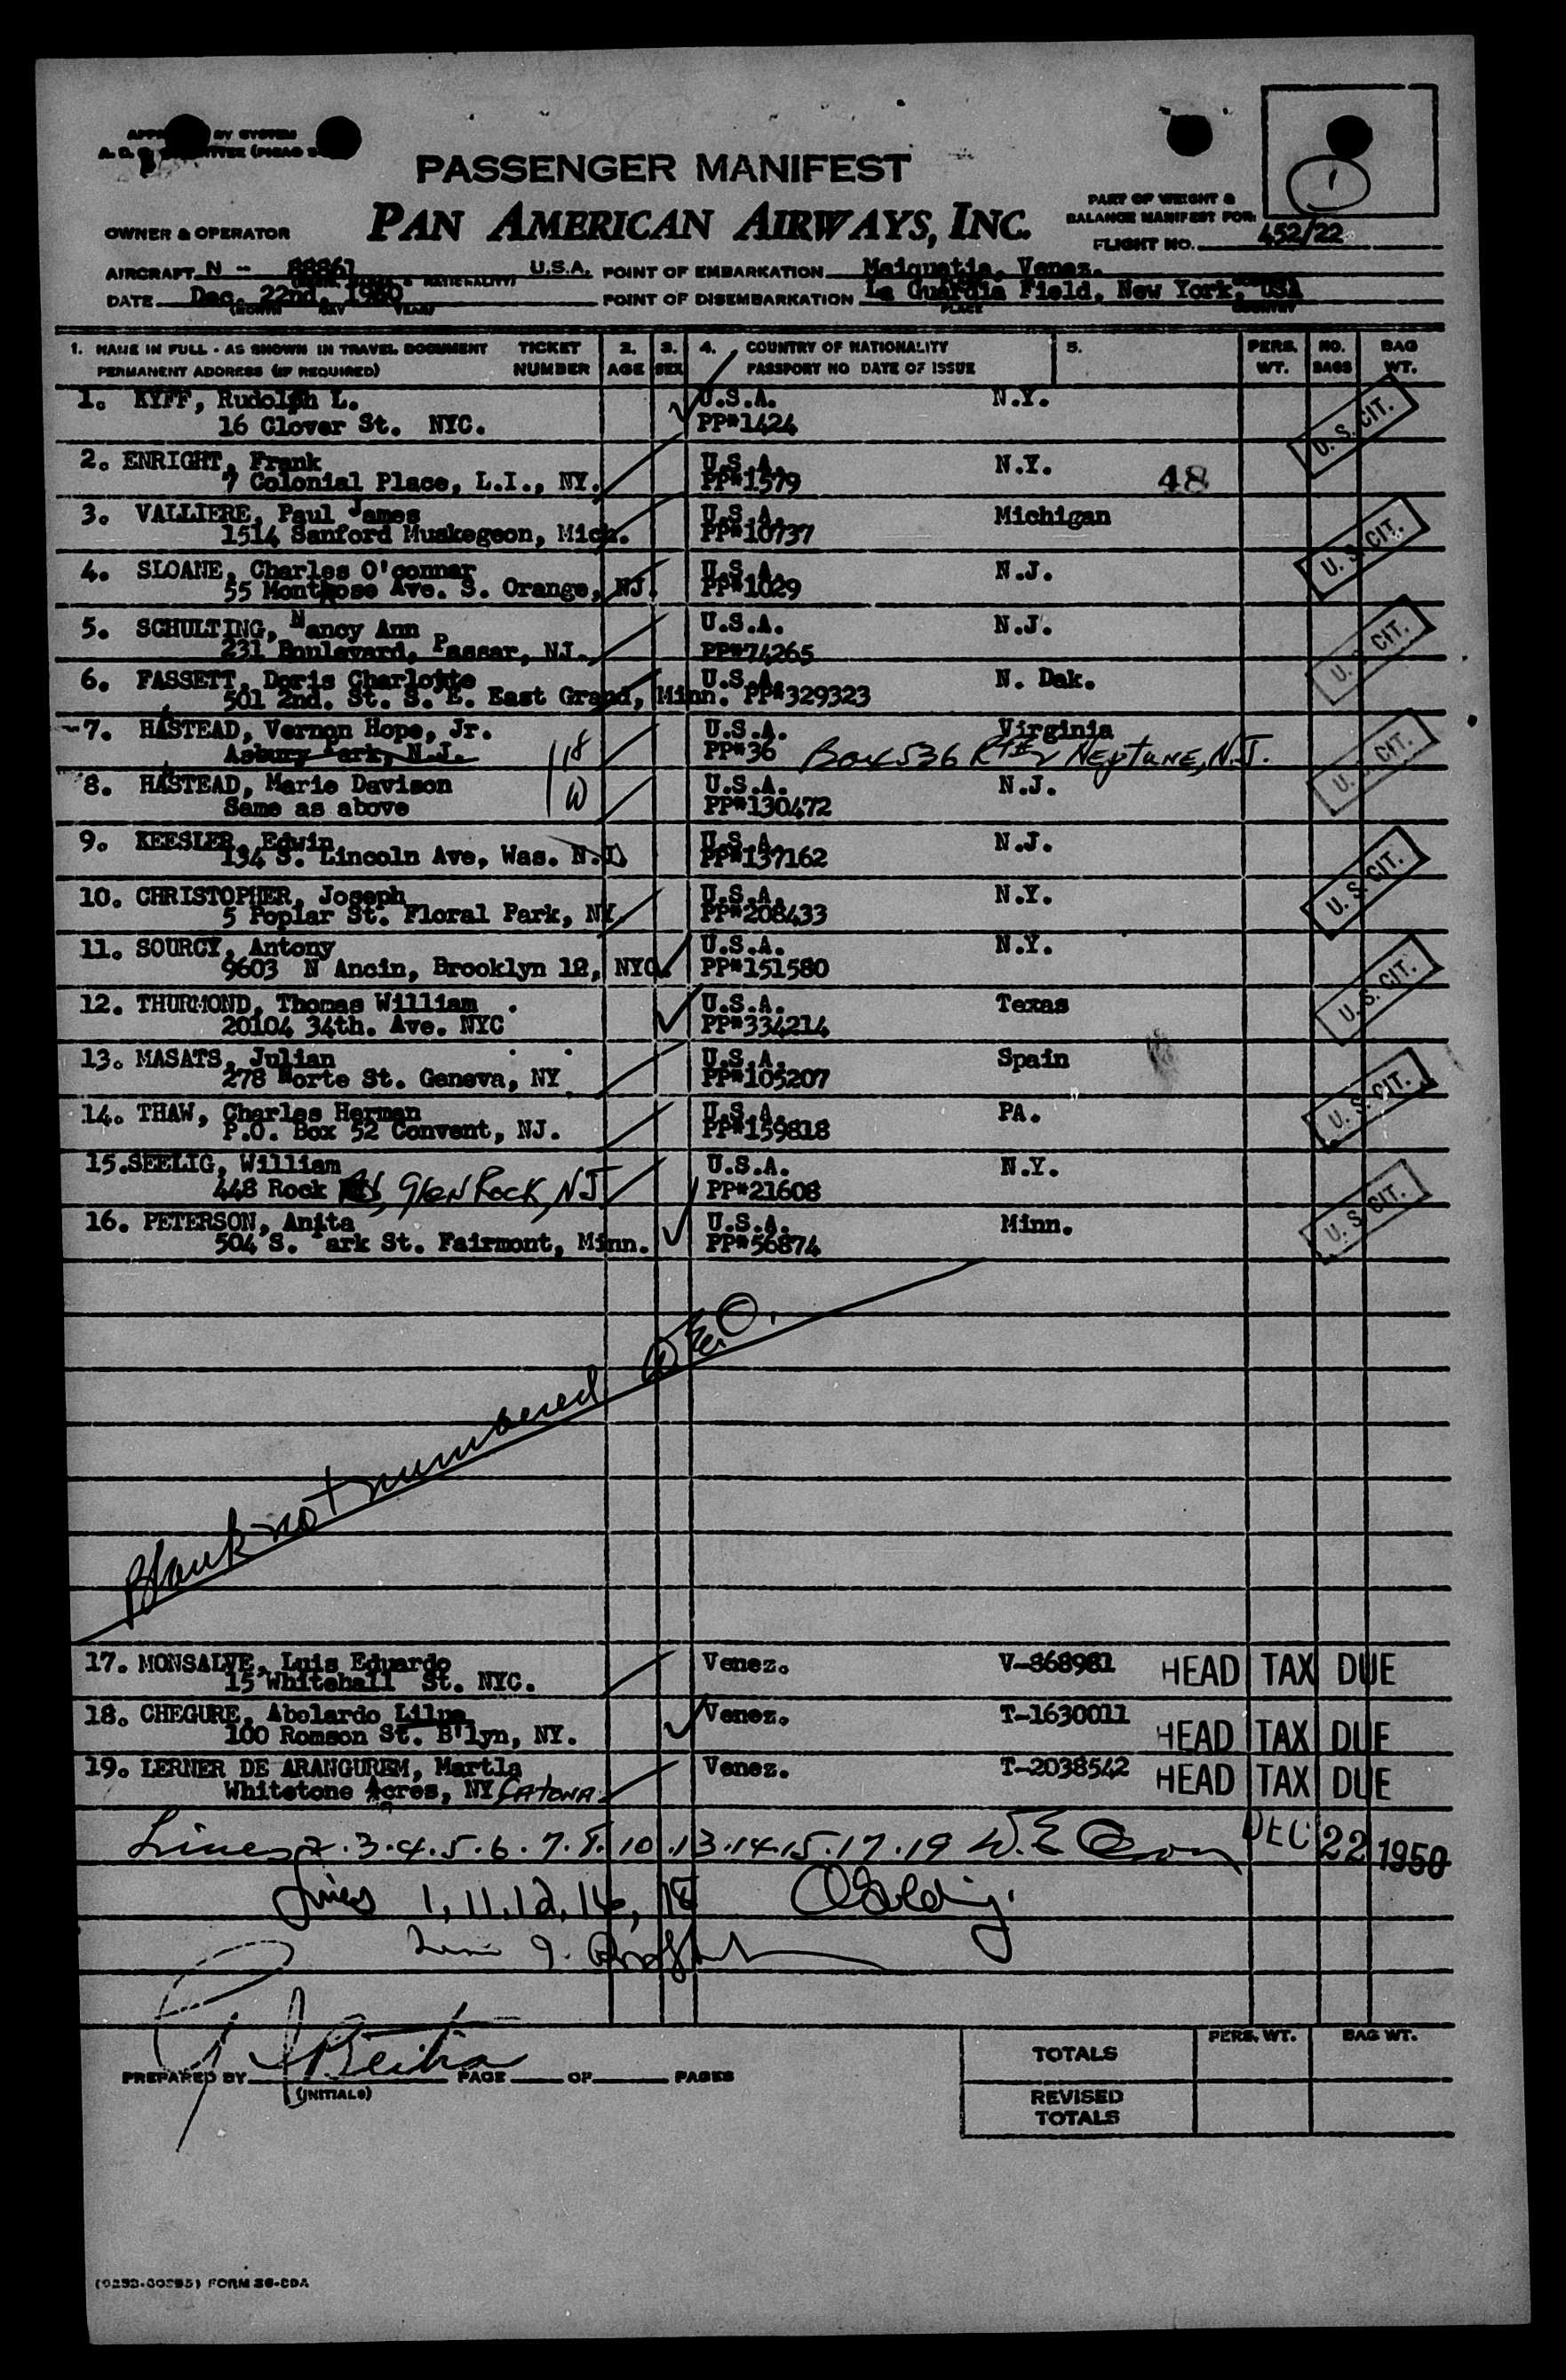 PASSENGER MANIFEST
PAN AMERICAN AIRWAYS, INC.
OWNER & OPERATOR
PART OF WEIGHT &
BALANCE MANIFEST FOR:
FLIGHT NO. 452/22
1
AIRCRAFT N - 88861 U.S.A. POINT OF EMBARKATION Maiquetia, Venez.
DATE Dec. 22nd, 1950 POINT OF DISEMBARKATION La Guardia Field, New York, USA
(MONTH DAY YEAR) PLACE COUNTRY
1. NAME IN FULL - AS SHOWN IN TRAVEL DOCUMENT TICKET 2. 3. 4. COUNTRY OF NATIONALITY 5. PERS. NO. BAG
PERMANENT ADDRESS (IF REQUIRED) NUMBER AGE SEX PASSPORT NO DATE OF ISSUE WT. BAGS WT.
1. KYFF, Rudolph L. U.S.A. N.Y.
16 Clover St. NYC. PP#1424 U. S. CIT.
2. ENRIGHT, Frank U.S.A. N.Y.
7 Colonial Place, L.I., NY. PP#1579 48
3. VALLIERE, Paul James U.S.A. Michigan
1514 Sanford Muskegeon, Mich. PP#10737 U. S. CIT.
4. SLOANE, Charles O'connor U.S.A. N.J.
55 Montrose Ave. S. Orange, NJ. PP#1029
5. SCHULTING, Nancy Ann U.S.A. N.J.
231 Boulevard, Passar, NJ. PP#74265 U. S. CIT.
6. FASSETT, Doris Charlotte U.S.A. N. Dak.
501 2nd. St. S. E. East Grand, Minn. PP#329323
7. HASTEAD, Vernon Hope, Jr. U.S.A. Virginia
Asbury Park, N.J. 18 PP#36 Box 536 Rt#2 NEPTUNE, N.J. U. S. CIT.
8. HASTEAD, Marie Davison U.S.A. N.J.
Same as above W PP#130472
9. KEESLER, Edwin U.S.A. N.J.
134 S. Lincoln Ave, Was. N.J. PP#137162 U. S. CIT.
10. CHRISTOPHER, Joseph U.S.A. N.Y.
5 Poplar St. Floral Park, NY. PP#208433
11. SOURCY, Antony U.S.A. N.Y.
9603 N Ancin, Brooklyn 12, NYC. PP#151580 U. S. CIT.
12. THURMOND, Thomas William U.S.A. Texas
20104 34th. Ave. NYC PP#334214
13. MASATS, Julian U.S.A. Spain
278 Norte St. Geneva, NY PP#105207 U. S. CIT.
14. THAW, Charles Herman U.S.A. PA.
P.O. Box 52 Convent, NJ. PP#159818
15. SEELIG, William U.S.A. N.Y.
448 Rock Rd, Glen Rock, NJ PP#21608 U. S. CIT.
16. PETERSON, Anita U.S.A. Minn.
504 S. Park St. Fairmont, Minn. PP#56874
Blank not numbered
17. MONSALVE, Luis Eduardo Venez. V-868981 HEAD TAX DUE
15 Whitehall St. NYC.
18. CHEGURE, Abolardo Lilue Venez. T-1630011 HEAD TAX DUE
100 Romson St. B'lyn, NY.
19. LERNER DE ARANGUREM, Martla Venez. T-2038542 HEAD TAX DUE
Whitetone Acres, NY CATONA
Lines 2.3.4.5.6.7.8.10.13.14.15.17.19 W.E. DEC 22 1950
Lines 1, 11, 12, 16, 18
Line 9.
PREPARED BY PAGE OF PAGES
(INITIALS)
PERS. WT. BAG WT.
TOTALS
REVISED
TOTALS